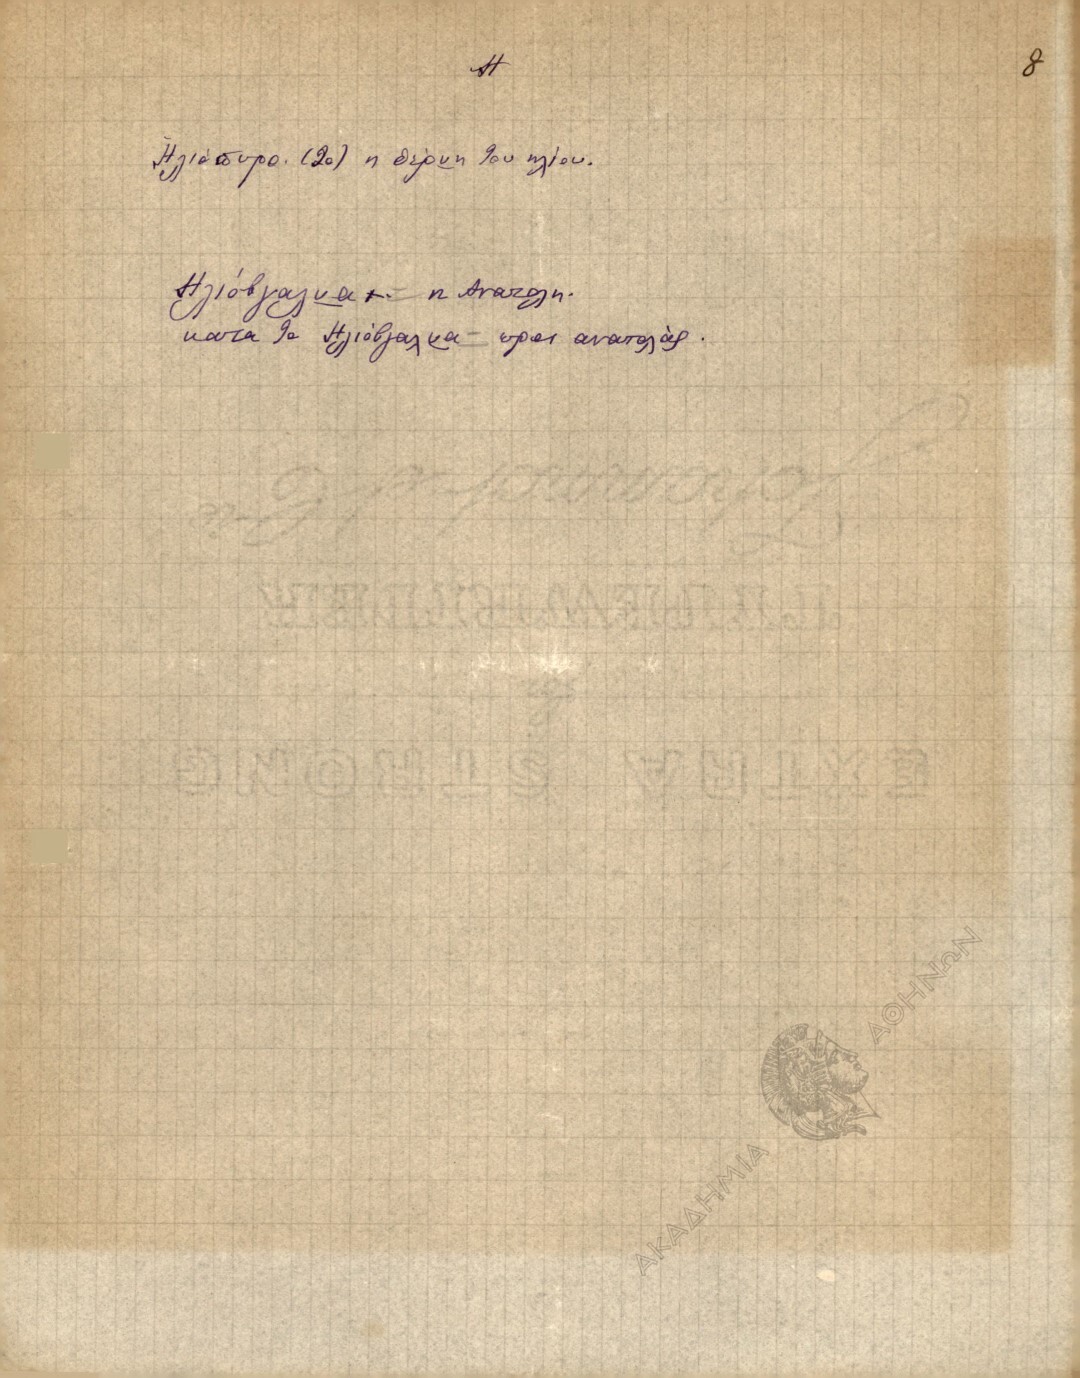 Η
8
Ηλιόπυρο. (το) η θέρμη του ηλίου.
Ηλιόβγαλμα - η Ανατολη.
κατα το Ηλιόβγαλμα - προς ανατολάς.
ΑΚΑΔΗΜΙΑ ΑΘΗΝΩΝ